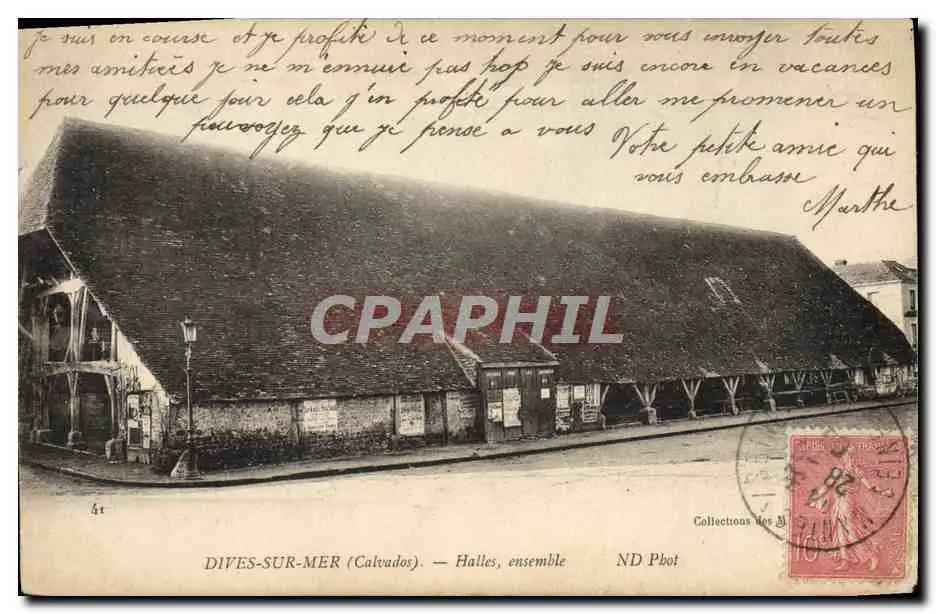 Je suis en course et je profite de ce moment pour vous envoyer toutes
mes amitiées je ne m'ennuie pas trop je suis encore en vacances
pour quelque jour cela j'en profite pour aller me promener un
pauvoyez que je pense a vous Votre petite amie qui
vous embrasse
Marthe
CPAPHIL
41
Collections des M
DIVES-SUR-MER (Calvados). — Halles, ensemble ND Phot
10